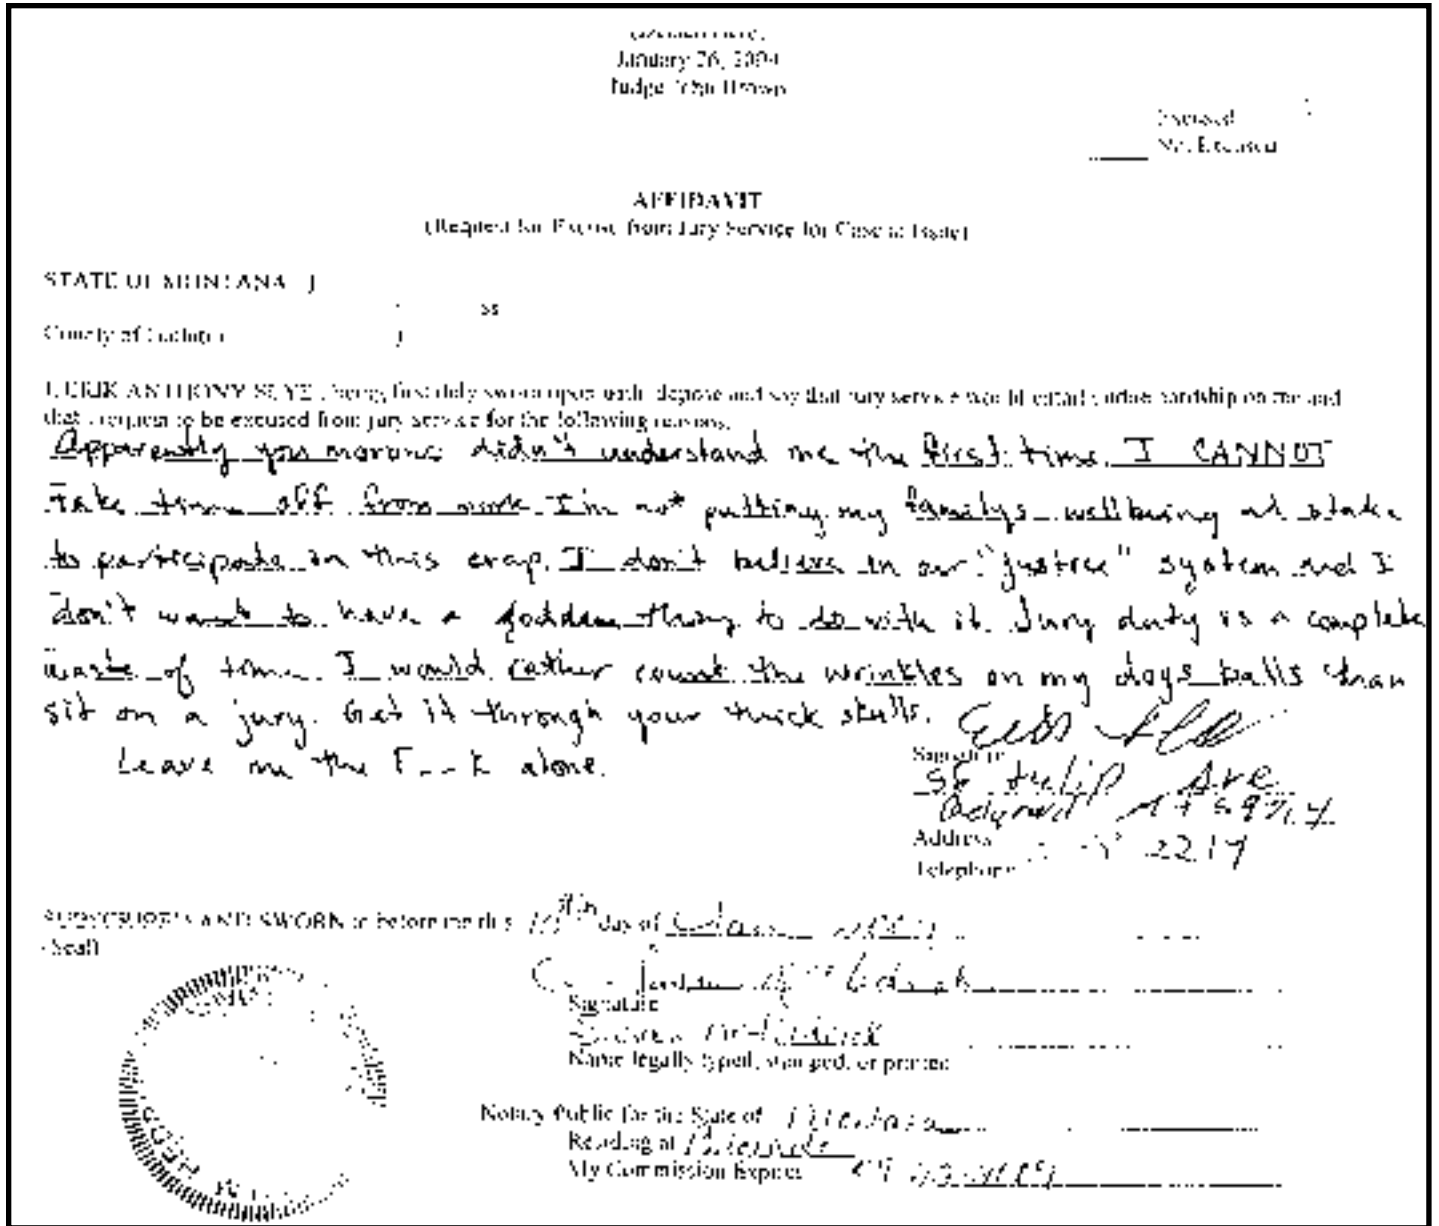 January 26, 2009
Judge John Brown
Excused
Not Excused
AFFIDAVIT
(Request for Excuse from Jury Service for Case at Issue)
STATE OF MONTANA )
) ss
County of Gallatin )
I, ERIK ANTHONY SLYE, being first duly sworn upon oath, depose and say that jury service would entail undue hardship on me and
that I request to be excused from jury service for the following reasons.
Apparently you morons didn't understand me the first time. I CANNOT
take time off from work. I'm not putting my familys wellbeing at stake
to participate in this crap. I don't believe in our "justice" system and I
don't want to have a goddam thing to do with it. Jury duty is a complete
waste of time. I would rather count the wrinkles on my dogs balls than
sit on a jury. Get it through your thick skulls.
Leave me the F--k alone.
Signature
Tulip Ave
Address
2217
Telephone
SUBSCRIBED AND SWORN to before me this day of
(Seal)
Signature
Name legally typed, stamped, or printed
Notary Public for the State of Montana
Residing at
My Commission Expires